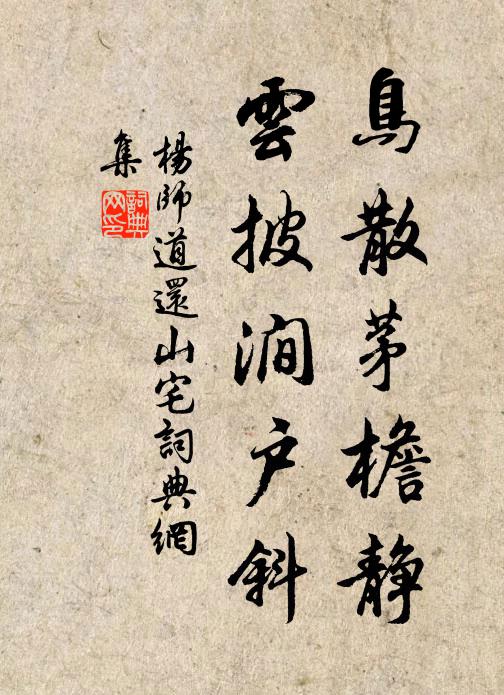 鳥散茅檐靜
雲披澗户斜
楊師道還山宅詞典網
集
詞典
网印